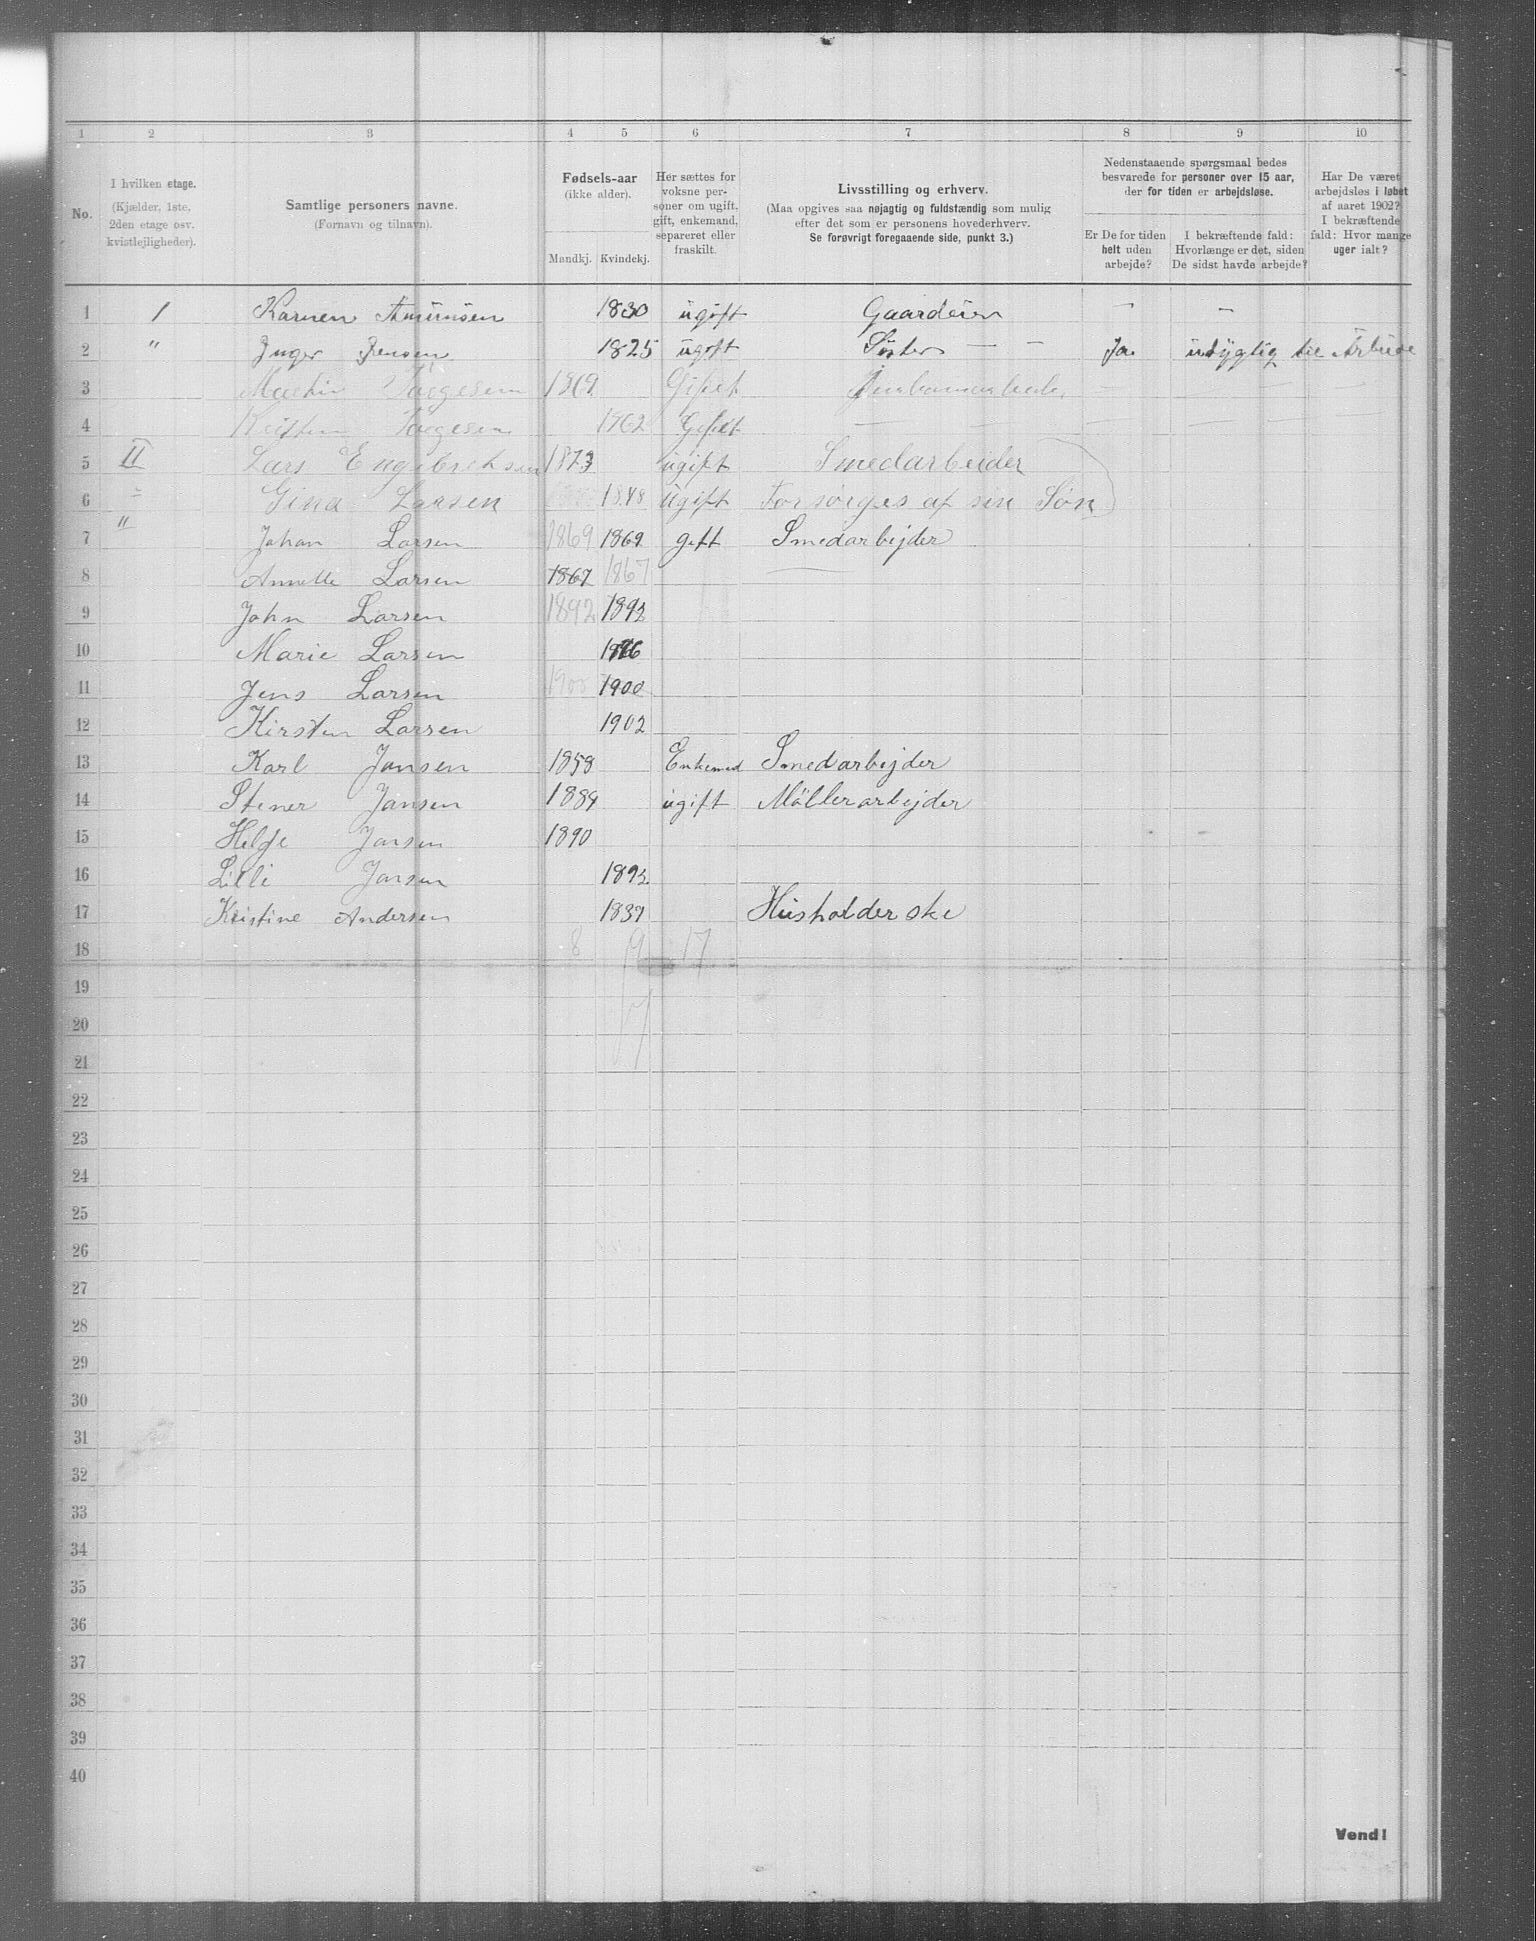 1 2 3 4 5 6 7 8 9 10
No.
I hvilken etage.
(Kjælder, 1ste,
2den etage osv.
kvistlejligheder).
Samtlige personers navne.
(Fornavn og tilnavn).
Fødsels-aar
(ikke alder).
Mandkj. Kvindekj.
Her sættes for
voksne per-
soner om ugift,
gift, enkemand,
separeret eller
fraskilt.
Livsstilling og erhverv.
(Maa opgives saa nøjagtig og fuldstændig som mulig
efter det som er personens hovederhverv.
Se forøvrigt foregaaende side, punkt 3.)
Nedenstaaende spørgsmaal bedes
besvarede for personer over 15 aar,
der for tiden er arbejdsløse.
Er De for tiden
helt uden
arbejde?
I bekræftende fald:
Hvorlænge er det, siden
De sidst havde arbejde?
Har De været
arbejdsløs i løbet
af aaret 1902?
I bekræftende
fald: Hvor mange
uger ialt?
1 1 Karnen Amunsen 1830 ugift Gaardeier — —
2 " Inger Jensen 1825 ugift Søster — — Ja udygtig til Arbeide
3 Martin 1869 Gift —
4 1862 Gift —
5 II Lars Engebretsen 1873 ugift Smedarbeider
6 " Gina Larsen 1848 ugift Forsørges af sin Søn
7 " Johan Larsen 1869 1869 gift Smedarbejder
8 Annette Larsen 1867 1867
9 John Larsen 1892 1892
10 Marie Larsen
11 Jens Larsen 1900 1900
12 Kirsten Larsen 1902
13 Karl Jansen 1858 Enkemd Smedarbejder
14 Stener Jansen 1884 ugift Möllerarbejder
15 Helge Jansen 1890
16 Lilli Jansen 1893
17 Kristine Andersen 1839 Husholderske
18 8 9 17
19
20
21
22
23
24
25
26
27
28
29
30
31
32
33
34
35
36
37
38
39
40
Vend!